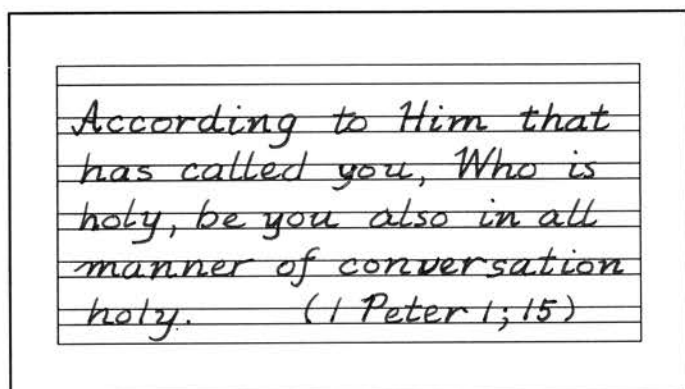 According to Him that
has called you, Who is
holy, be you also in all
manner of conversation
holy. (1 Peter 1; 15)